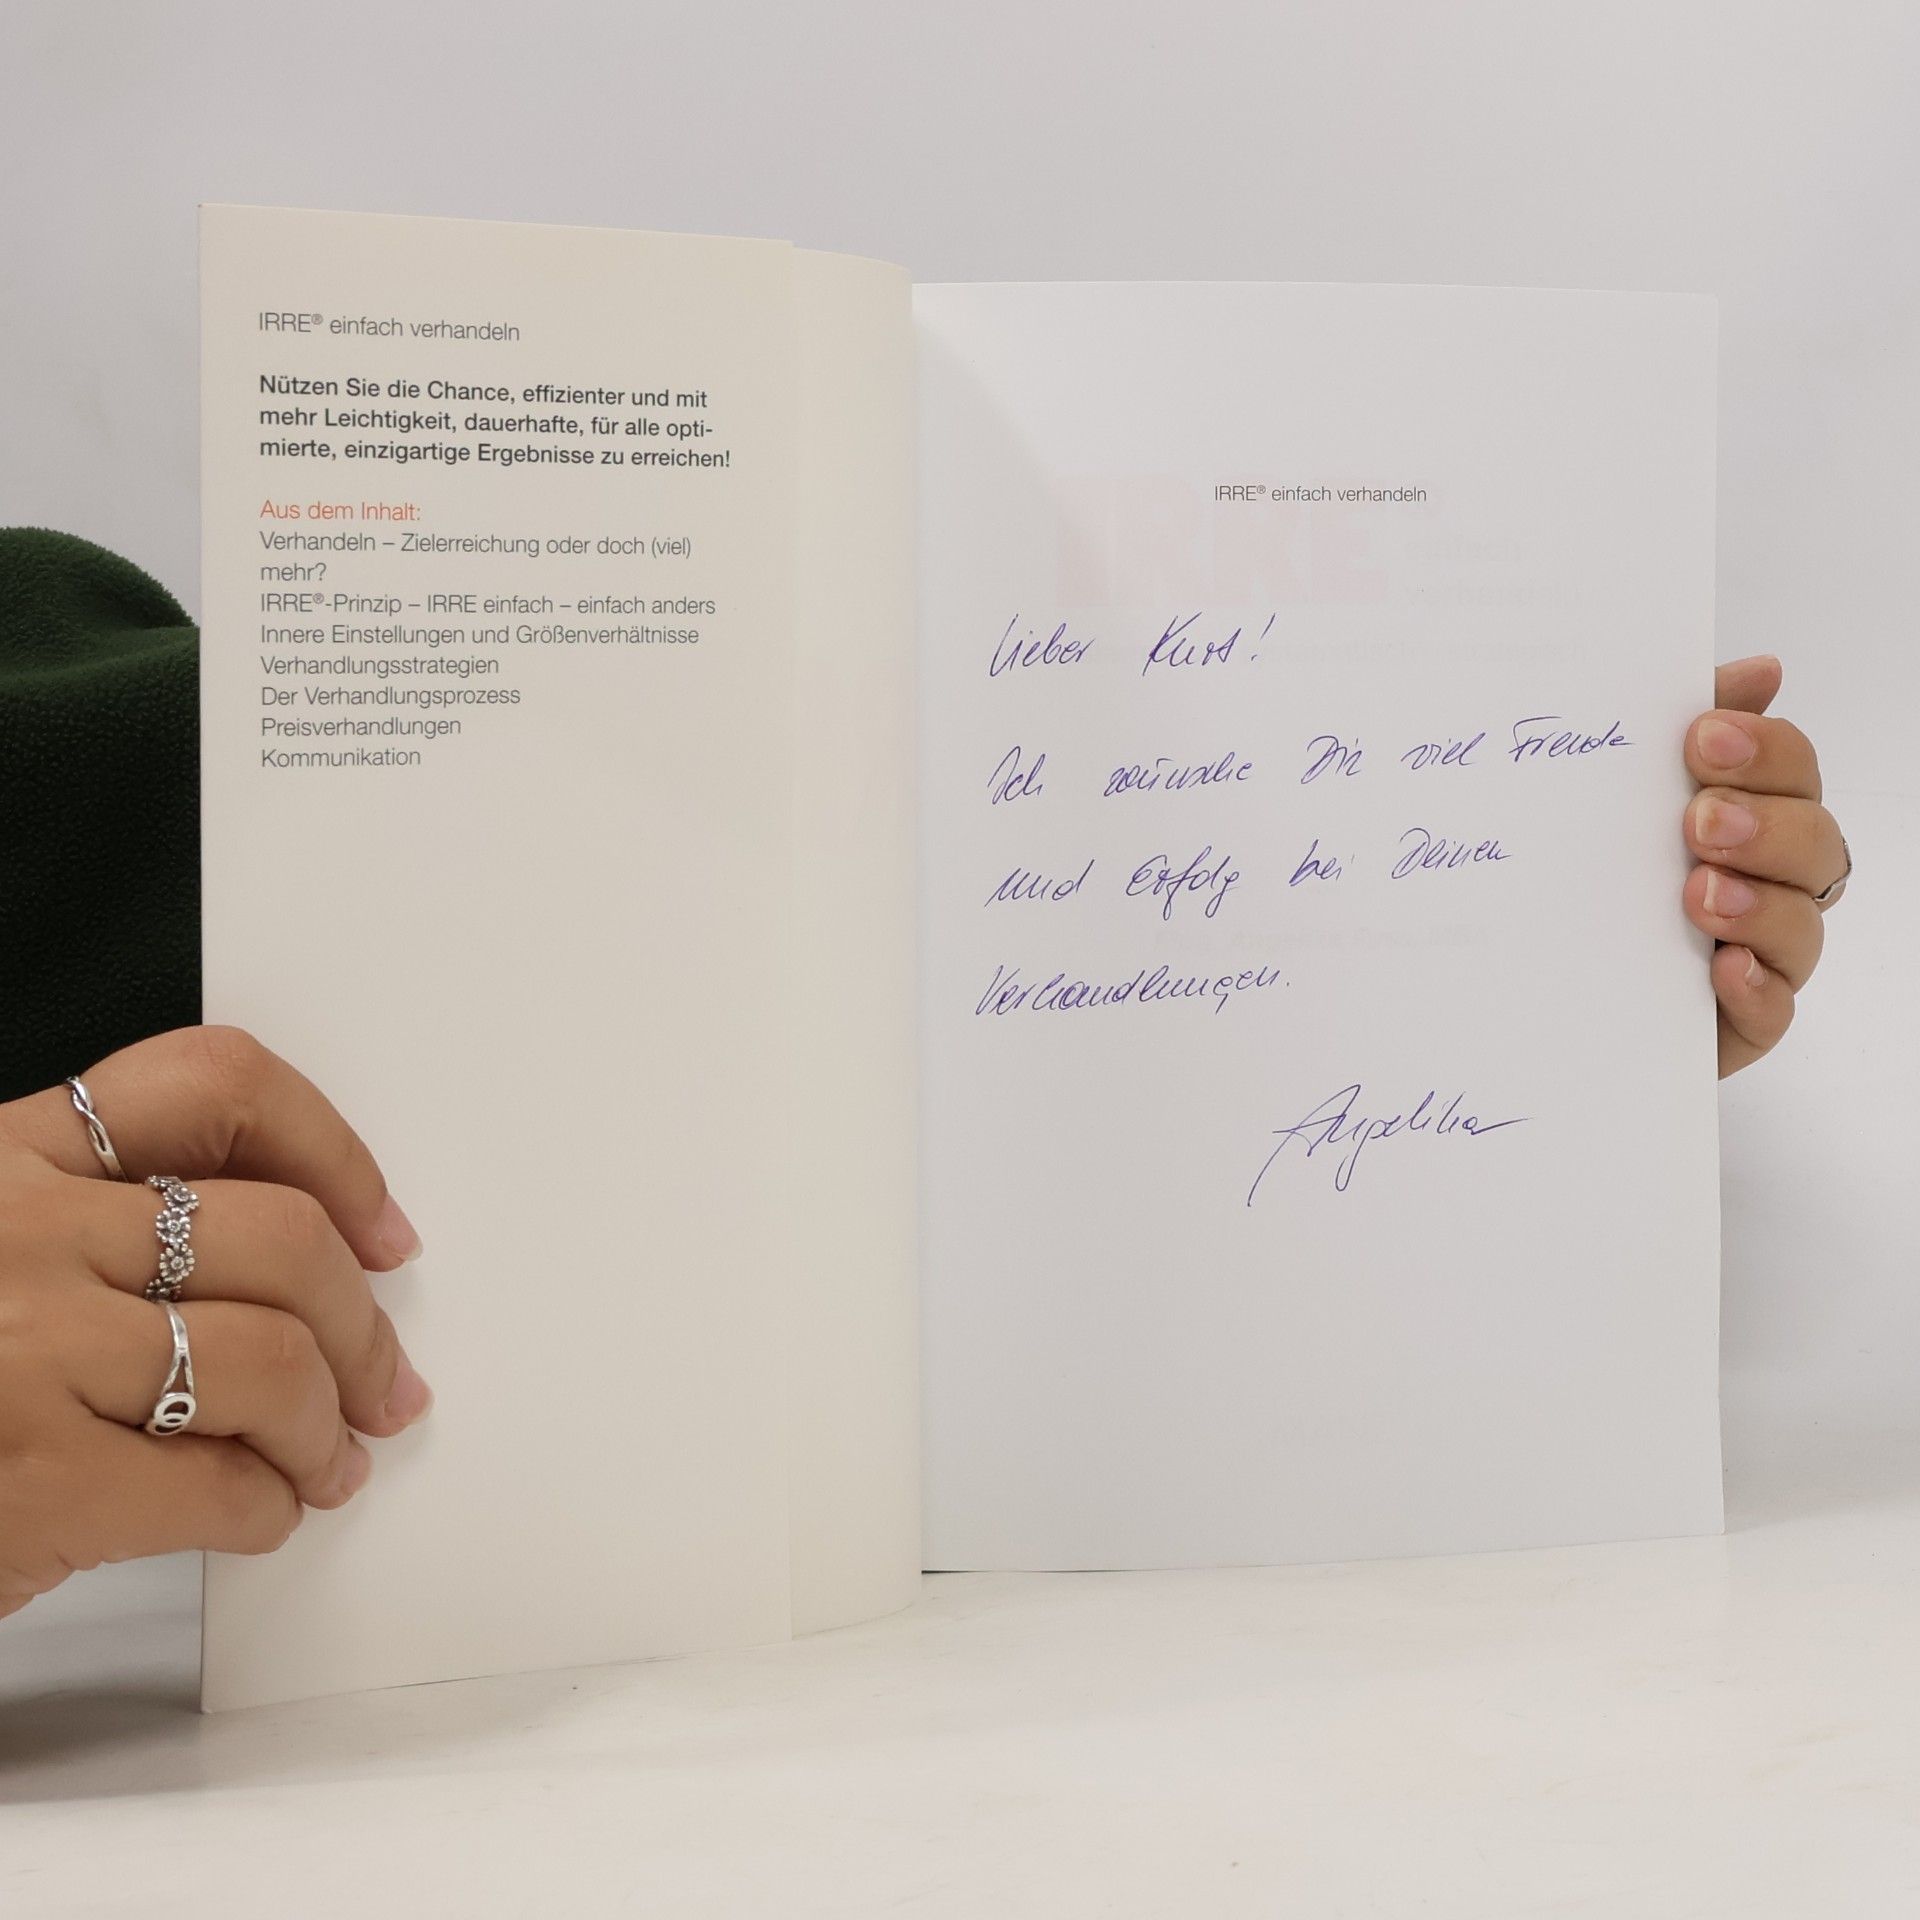 IRRE® einfach verhandeln
Nützen Sie die Chance, effizienter und mit
mehr Leichtigkeit, dauerhafte, für alle opti-
mierte, einzigartige Ergebnisse zu erreichen!
Aus dem Inhalt:
Verhandeln – Zielerreichung oder doch (viel)
mehr?
IRRE®-Prinzip – IRRE einfach – einfach anders
Innere Einstellungen und Größenverhältnisse
Verhandlungsstrategien
Der Verhandlungsprozess
Preisverhandlungen
Kommunikation
IRRE® einfach verhandeln
Lieber Kurt!
Ich wünsche Dir viel Freude
und Erfolg bei Deinen
Verhandlungen.
Angelika